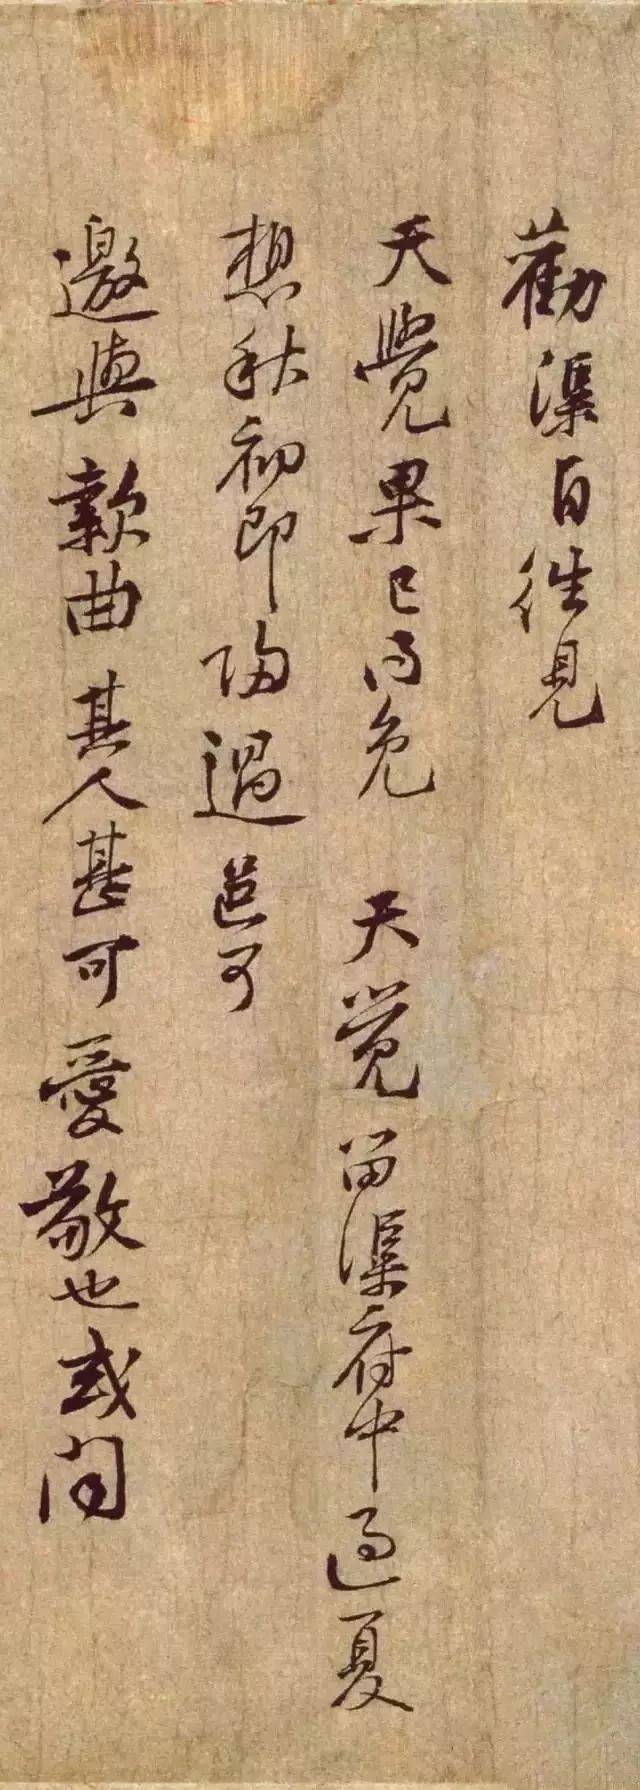 勸渠自往見
天覺果已得免 天覺留渠府中過夏
想秋初即歸過邑可
邀與款曲其人甚可愛敬也或聞